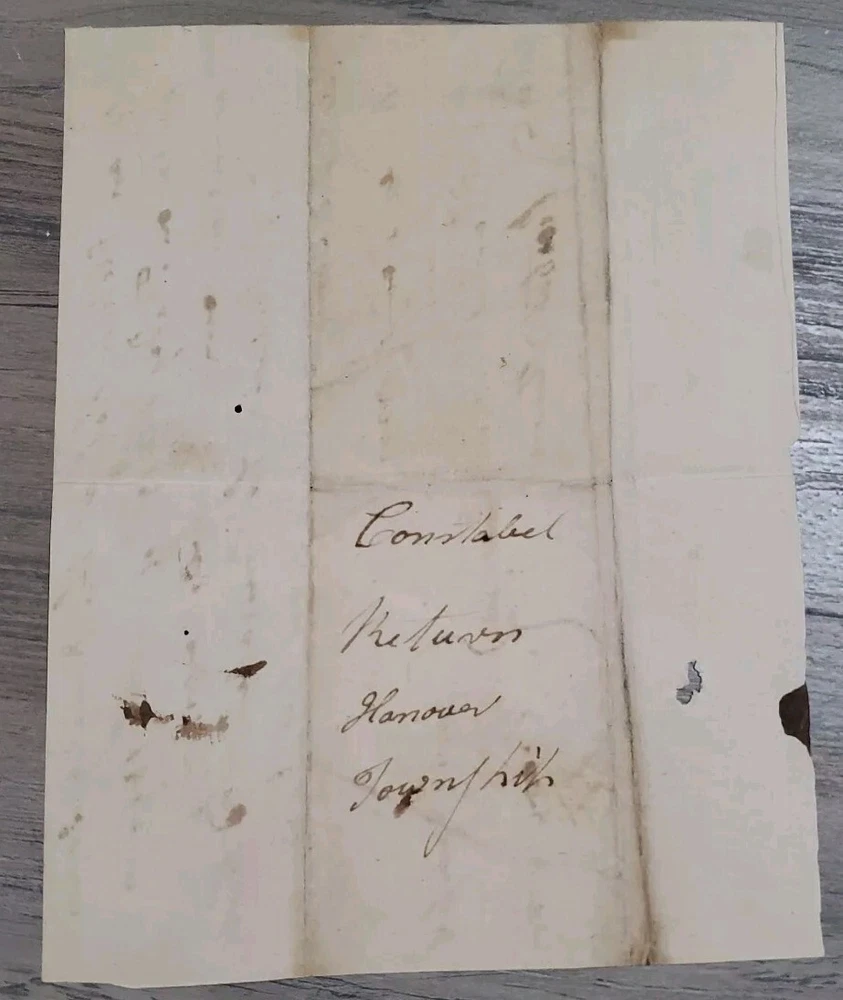 Constabel
Return
Hanover
Townſhip